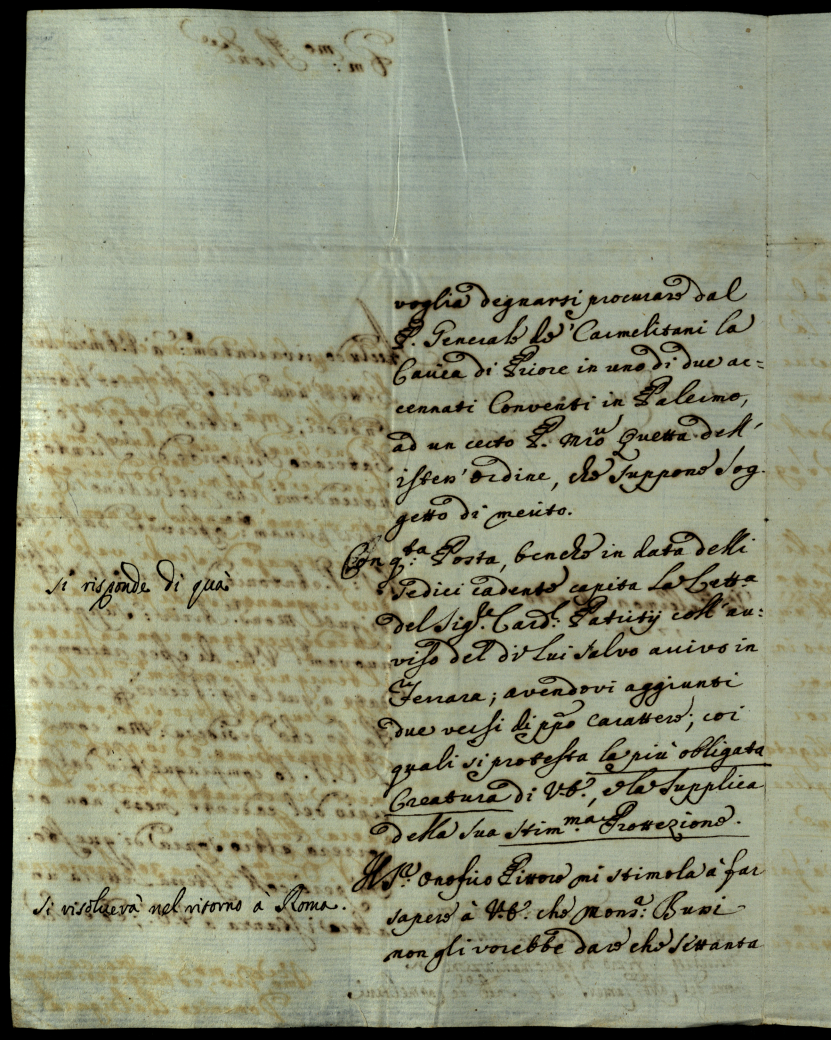 voglia degnarsi procurare dal
P. Generale de' Carmelitani la
Carica di Priore in uno di due ac=
cennati Conventi in Palermo,
ad un certo P. Mrõ Quetta dell'
istess' ordine, che suppone sog-
getto di merito.
Con q.ta Posta, benche in data delli
sedici cadente capita la Lettª
del Sig.re Card.l Patritij coll' au:
viso del di Lui salvo arrivo in
Ferrara; avendovi aggiunti
due versi di pp̃o carattere; coi
quali si protesta la più obligata
Creatura di V.E., e la supplica
della sua stim.ma Prottezione.
Si risponde di quà
Il S.r Onofrio Pittore mi stimola à far
sapere à V.E. che Mons.r Bussi
non gli vorebbe dare che settanta
Si risolverà nel ritorno à Roma.